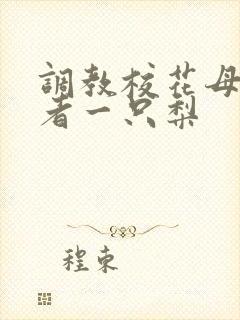 調教校花母
者一只梨
程束